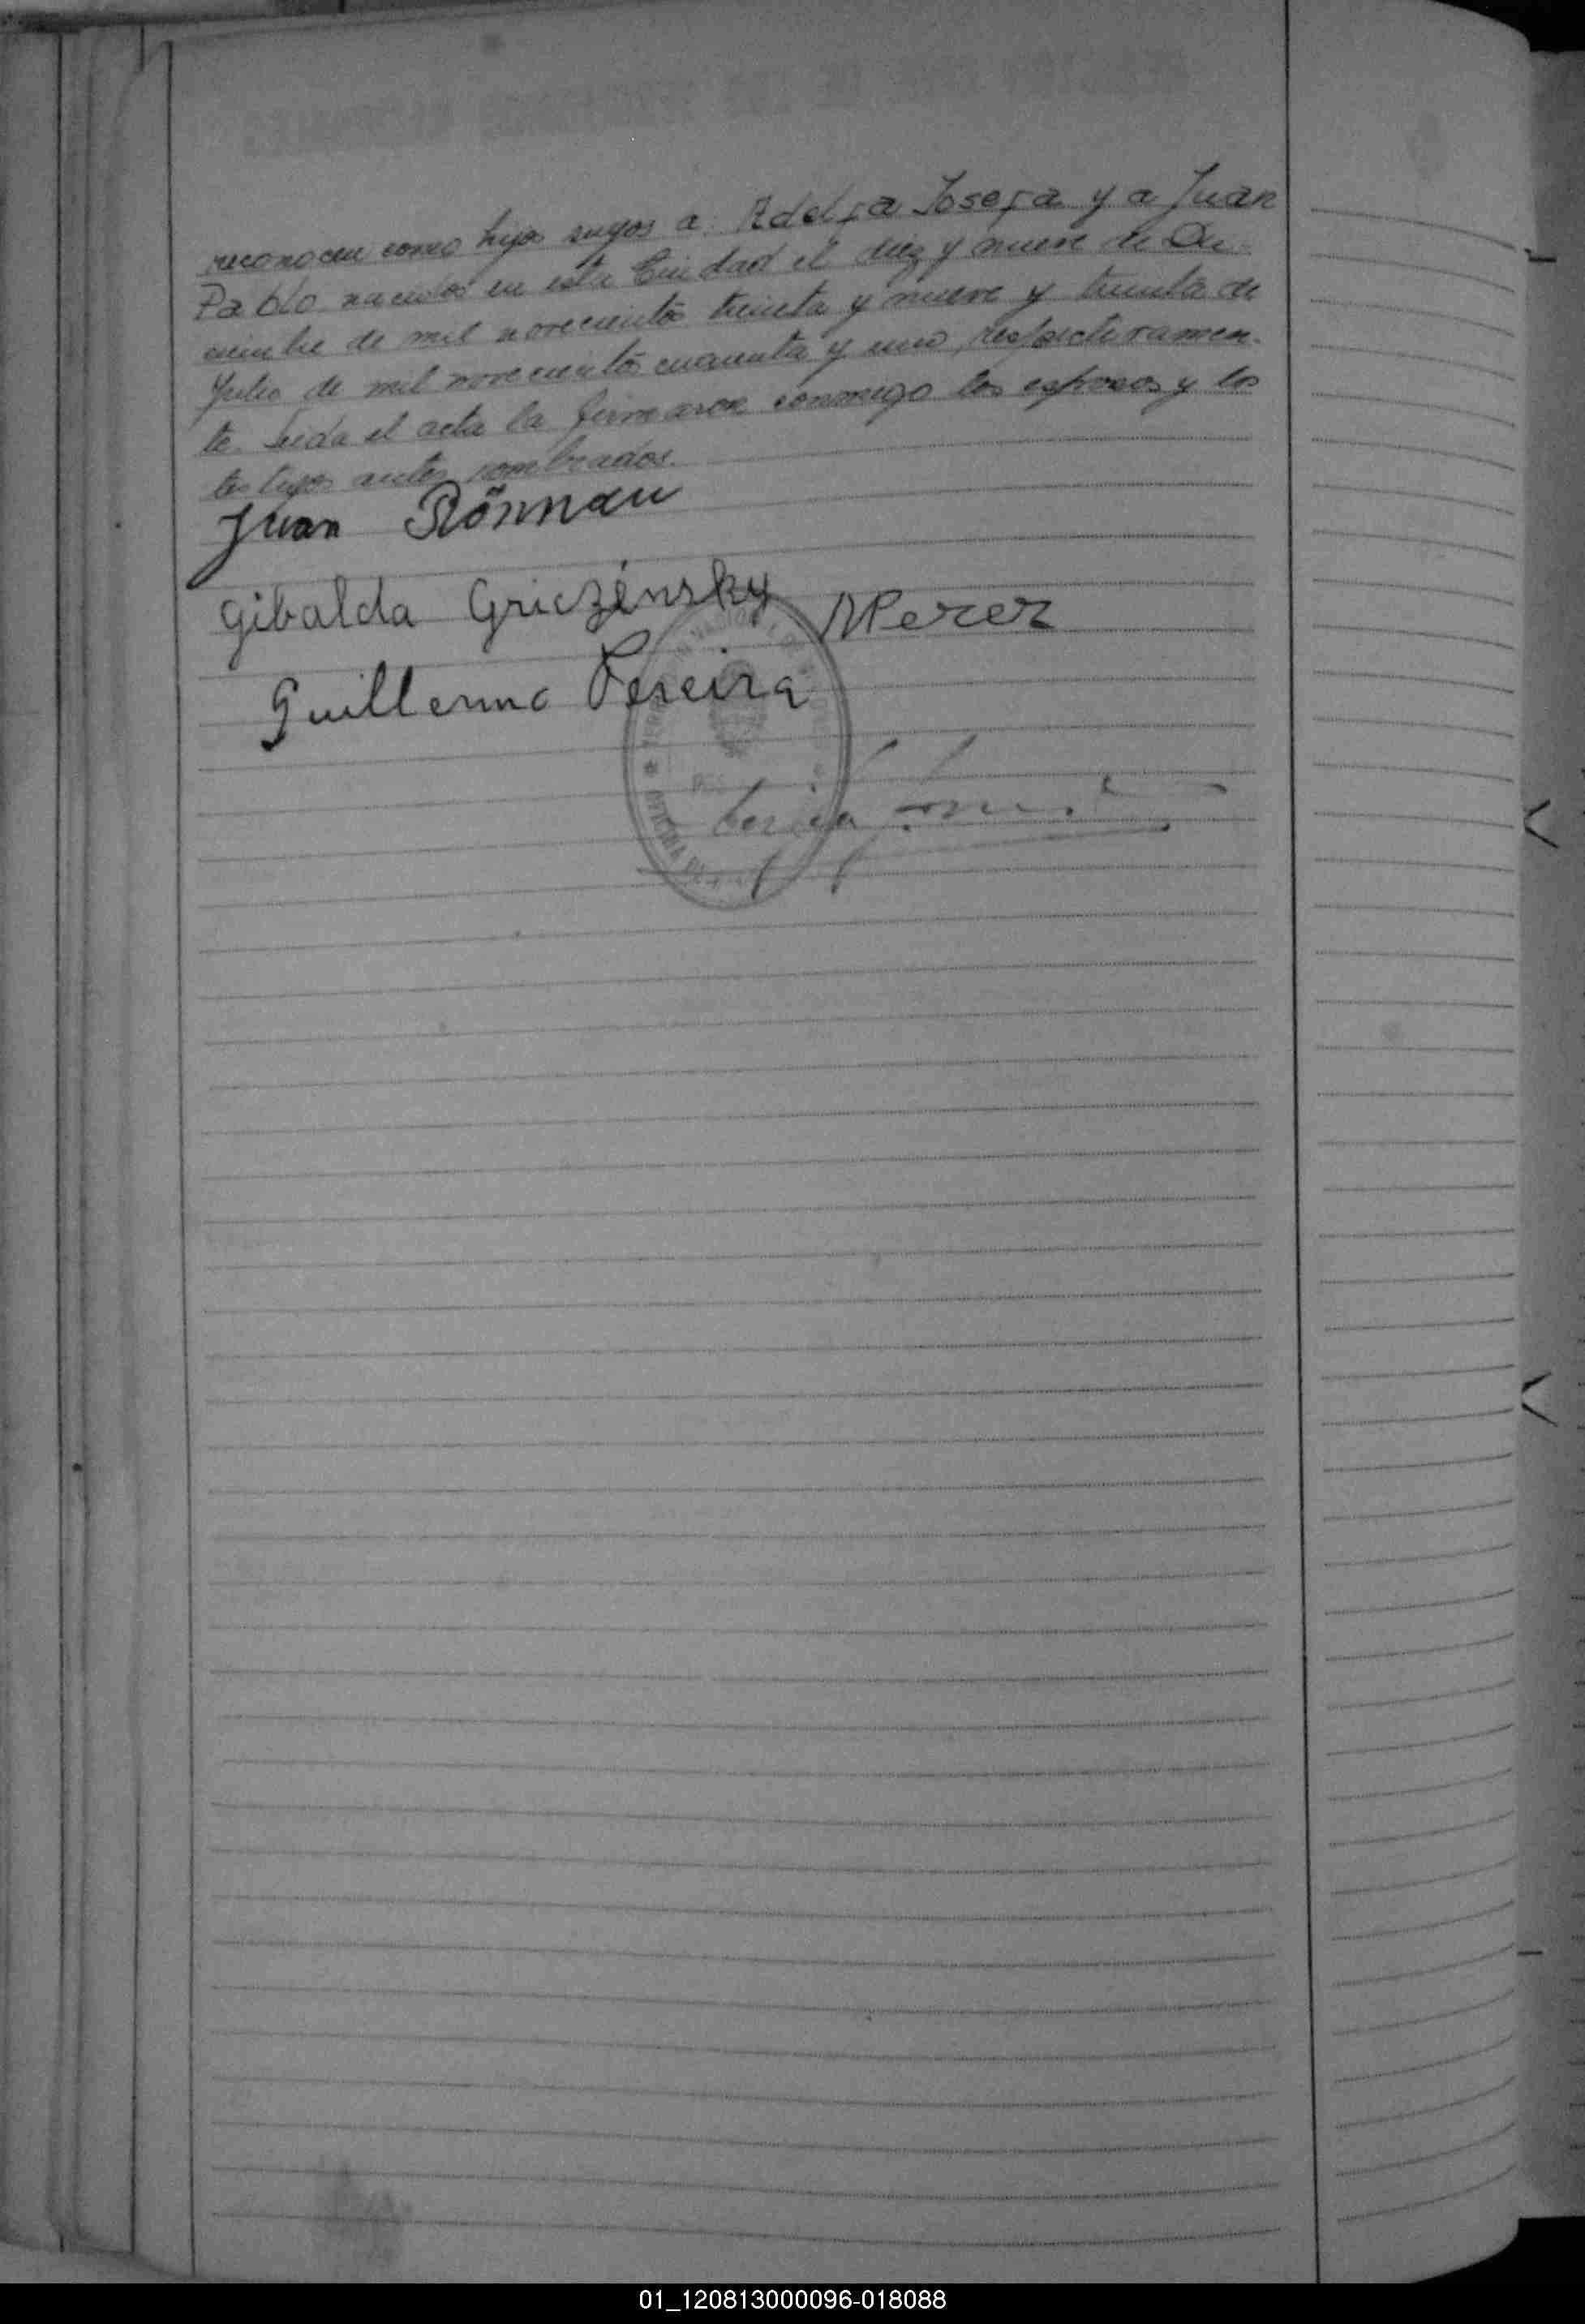 reconocen como hijos suyos a: Adelfa Josefa y a Juan
Pablo nacidos en esta Ciudad el diez y nueve de Di-
ciembre de mil novecientos treinta y nueve y treinta de
Julio de mil novecientos cuarenta y uno, respectivamen-
te. Leida el acta la firmaron conmigo los esposos y los
testigos antes nombrados.
Juan Rönnau
Gibalda Griczénsky
Perez
Guillermo Pereira
01_120813000096-018088